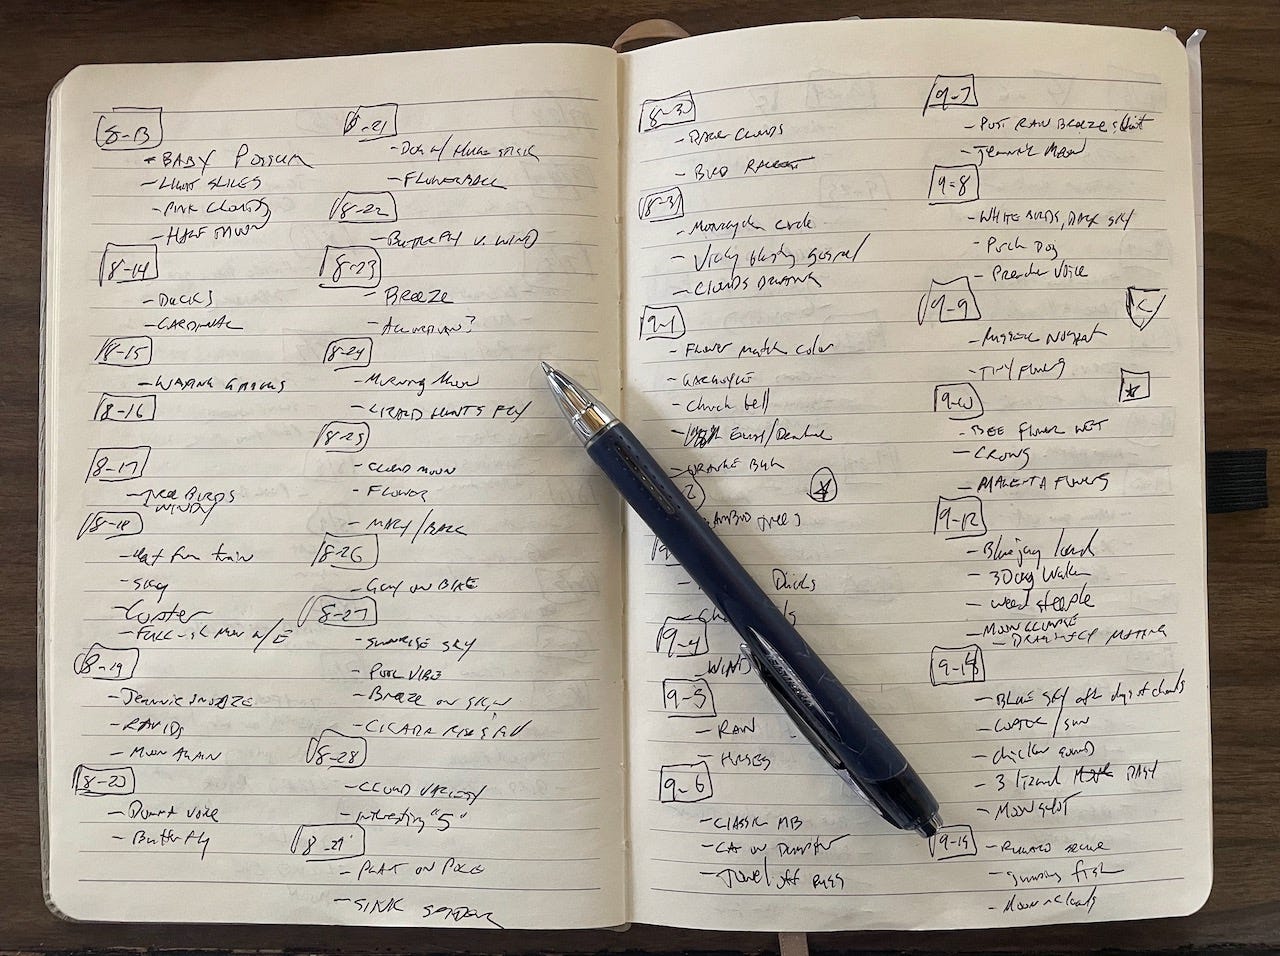 8-13
- BABY POSSUM
- LIGHT SLICES
- PINK CLOUDS
- HALF MOON
8-14
- DUCKS
- CARDINAL
8-15
- WAXING
8-16
8-17
- TREE BIRDS
WINDY
8-18
- train
- SKY
- Coaster
- MOON
8-19
- Jeannie SNOOZE
- RAVIOLI
- MOON AGAIN
8-20
- Donna voice
- Butterfly
8-21
- DOG W/ HUGE STICK
- FLOWERBALL
8-22
- BUTTERFLY V. WIND
8-23
- BREEZE
- ACCORDION?
8-24
- Morning Moon
- LIZARD HUNTS FLY
8-25
- CLOUD MOON
- FLOWER
- MARY/
8-26
- GUY ON BIKE
8-27
- SUNRISE SKY
- POOL VIBE
- BREEZE ON SKIN
- CICADA
8-28
- CLOUD VARIETY
- Interesting "5"
8-29
- PLANT ON POLE
- SINK SPIDER
8-30
- DARK CLOUDS
- BIRD
8-31
- Motorcycle circle
- Vicky gospel
- CLOUDS DRAMA
9-1
- FLOWER match color
- GARGOYLE
- Church bell
- ORANGE
2
trees
Ducks
9-4
- WIND
9-5
- RAIN
- HORSES
9-6
- CLASSIC MB
- CAT ON DUMPSTER
- Towel off
9-7
- POST RAIN BREEZE
- Jeannie Moon
9-8
- WHITE BIRDS, DARK SKY
- Porch Dog
- Preacher Voice
9-9
- NUGGET
- TINY FLOWERS
9-10
- BEE FLOWER WET
- CROWS
- MAGENTA FLOWERS
9-12
- Bluejay
- 3 Dog Walk
- weed steeple
- MOON GLIMPSE
- DRAGONFLY MATING
9-14
- BLUE SKY after days of clouds
- /SUN
- chicken sound
- 3 lizard DAY
- Moon
9-15
- jumping fish
- Moon clouds